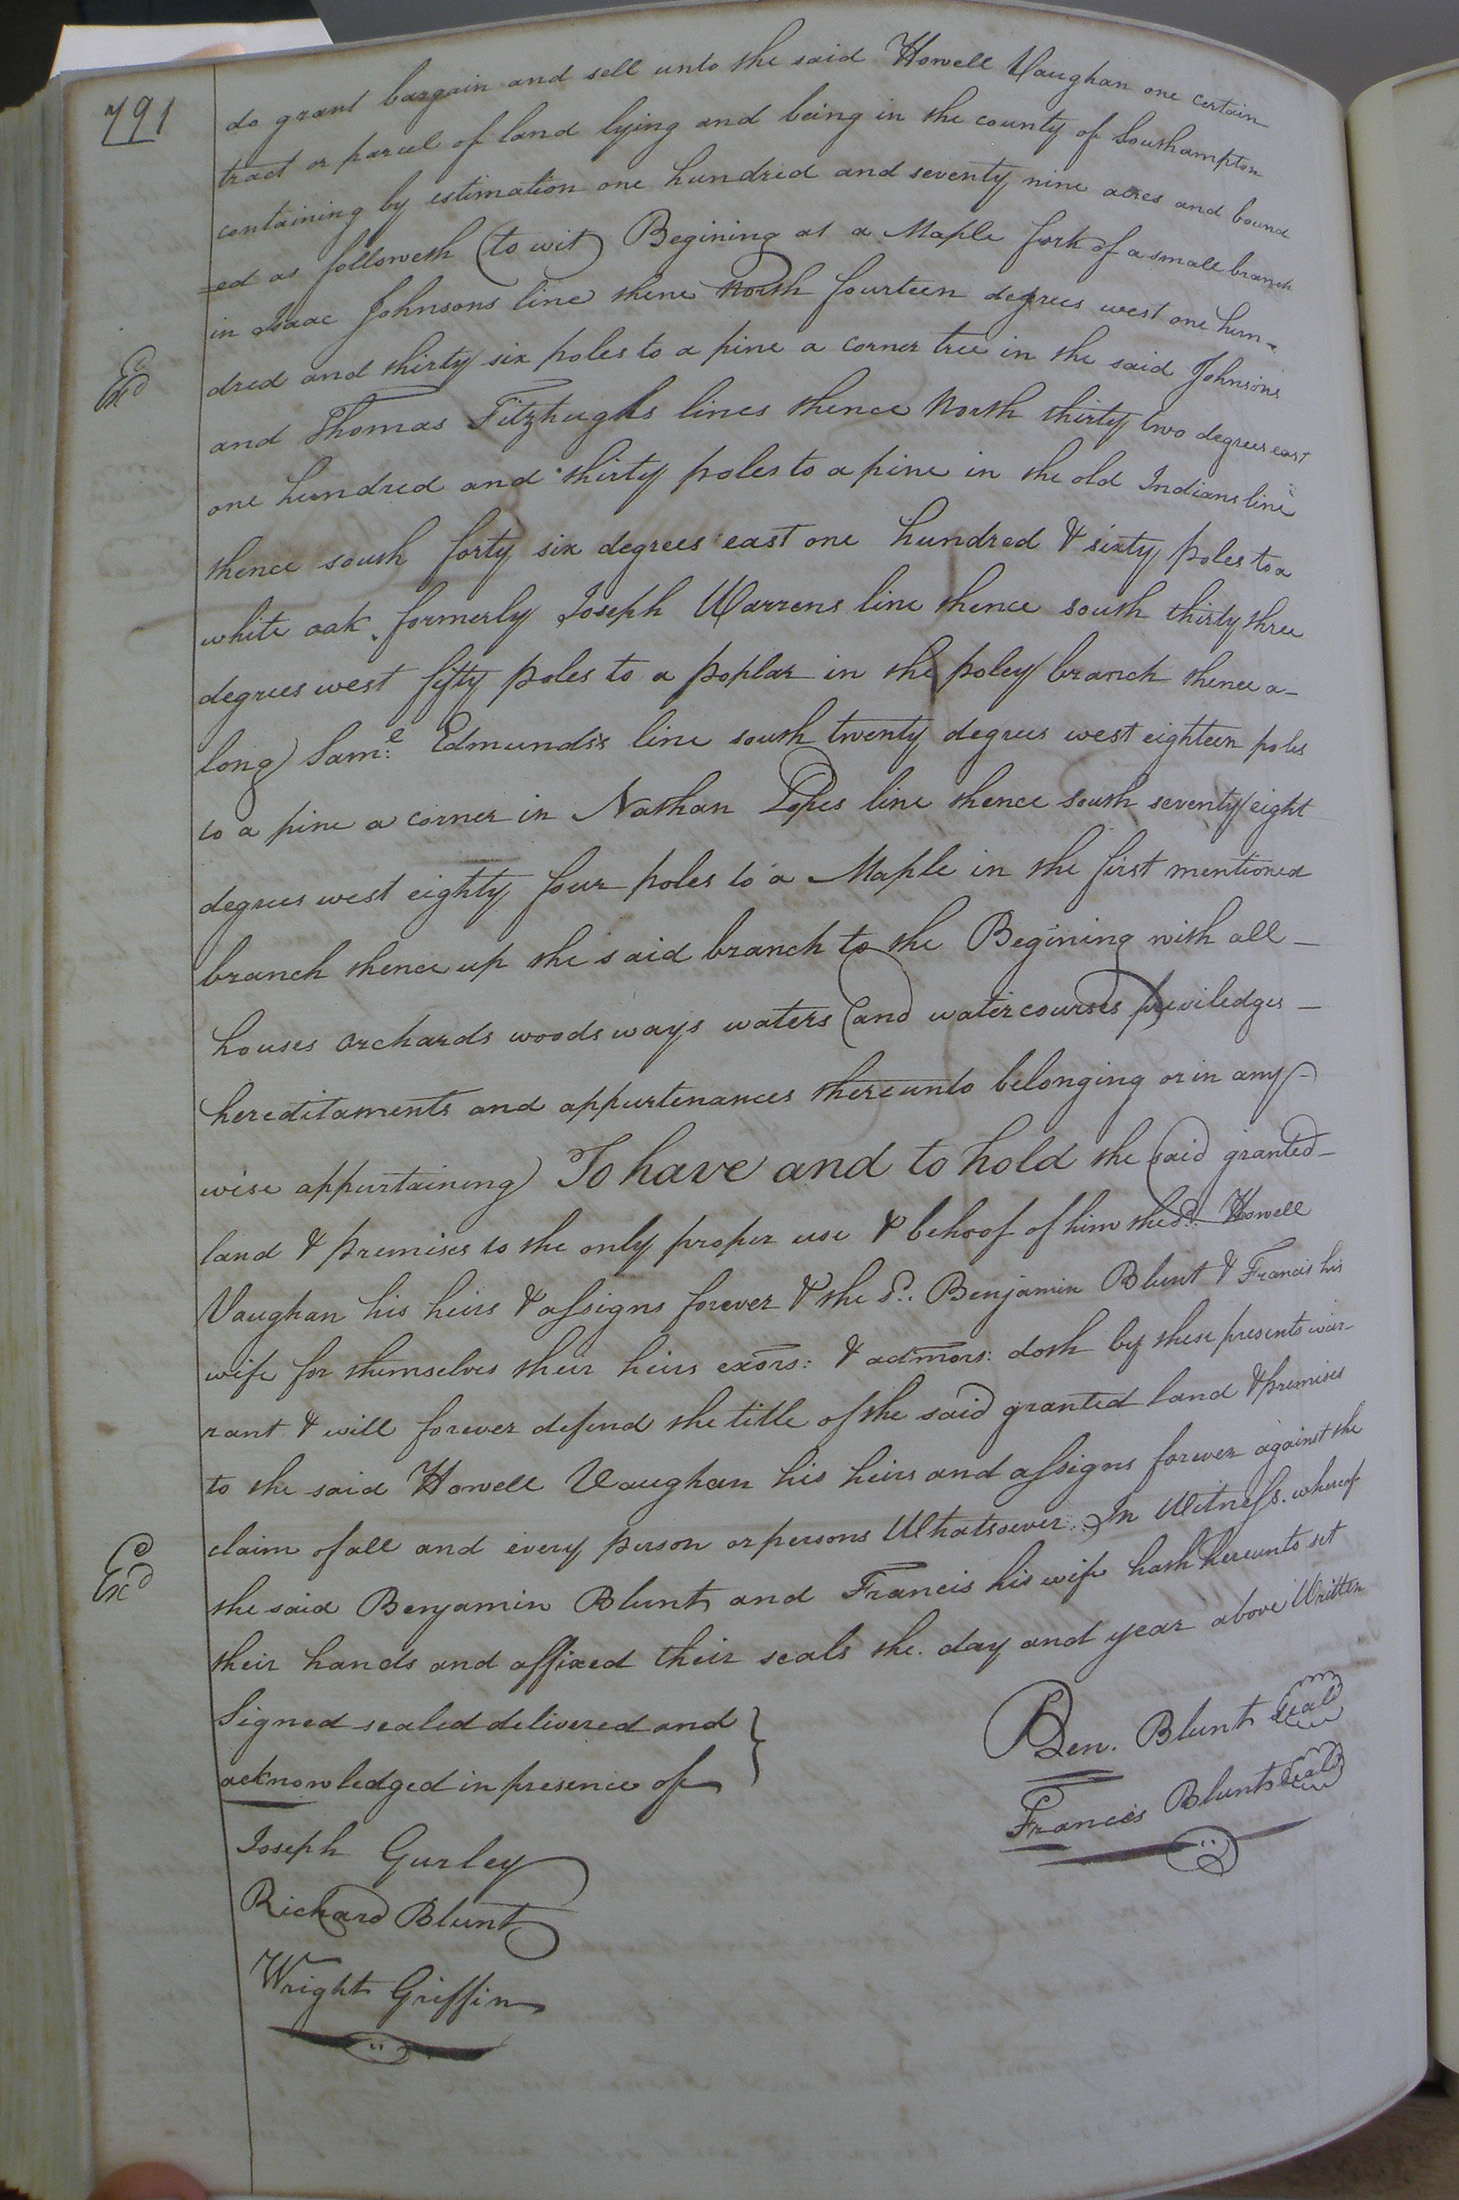 791
do grant bargain and sell unto the said Howell Vaughan one certain
tract or parcel of land lying and being in the county of Southampton
containing by estimation one hundred and seventy nine acres and bound
=ed as followeth (to wit) Begining at a Maple fork of a small branch
in Isaac Johnsons line thence North fourteen degrees west one hun-
dred and thirty six poles to a pine a corner tree in the said Johnsons
and Thomas Fitzhughs lines thence North thirty two degrees east
one hundred and thirty poles to a pine in the old Indians line
thence south forty six degrees east one hundred & sixty poles to a
white oak formerly Joseph Warrens line thence south thirty three
degrees west fifty poles to a poplar in the poley branch thence a-
long Sam:l Edmunds's line south twenty degrees west eighteen poles
to a pine a corner in Nathan Popes line thence south seventy eight
degrees west eighty four poles to a Maple in the first mentioned
branch thence up the said branch to the Begining with all -
houses orchards woods ways waters and watercourses priviledges -
hereditaments and appurtenances thereunto belonging or in any -
wise appurtaining To have and to hold the said granted -
land & premises to the only proper use & behoof of him the sd. Howell
Vaughan his heirs & assigns forever & the sd. Benjamin Blunt & Francis his
wife for themselves their heirs exors: & admors: doth by these presents war-
rant & will forever defend the title of the said granted land & premises
to the said Howell Vaughan his heirs and assigns forever against the
claim of all and every person or persons Whatsoever. In Witness whereof
the said Benjamin Blunt and Francis his wife hath hereunto set
their hands and affixed their seals the day and year above Written
Signed sealed delivered and
acknowledged in presence of
Ben. Blunt seal
Francis Blunt seal
Joseph Gurley
Richard Blunt
Wright Griffin